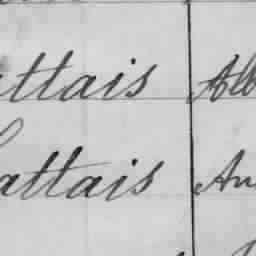 attais Alb
attais An